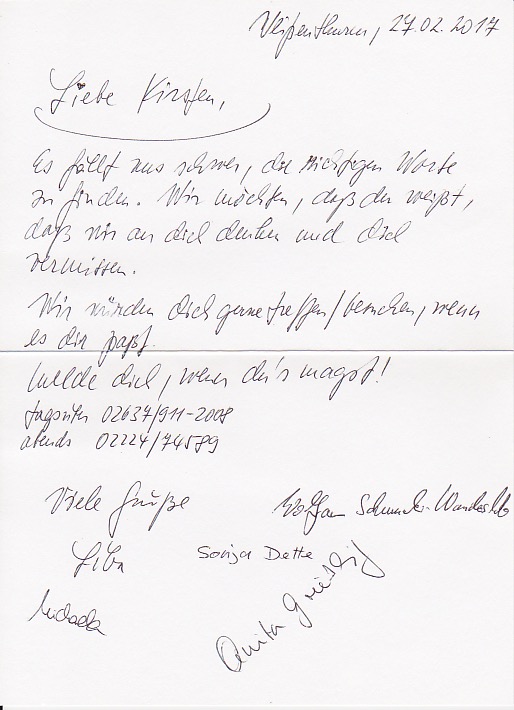 Weißenthurm, 27.02.2017
Liebe Kirsten,
Es fällt uns schwer, die richtigen Worte
zu finden. Wir möchten, daß du weißt,
daß wir an dich denken und dich
vermissen.
Wir würden dich gerne treffen/besuchen, wenn
es dir paßt.
Melde dich, wenn du's magst!
tagsüber 02637/911-2008
abends 02224/74589
Viele Grüße
Wolfgang
Sonja Dette
Michaela
Anita